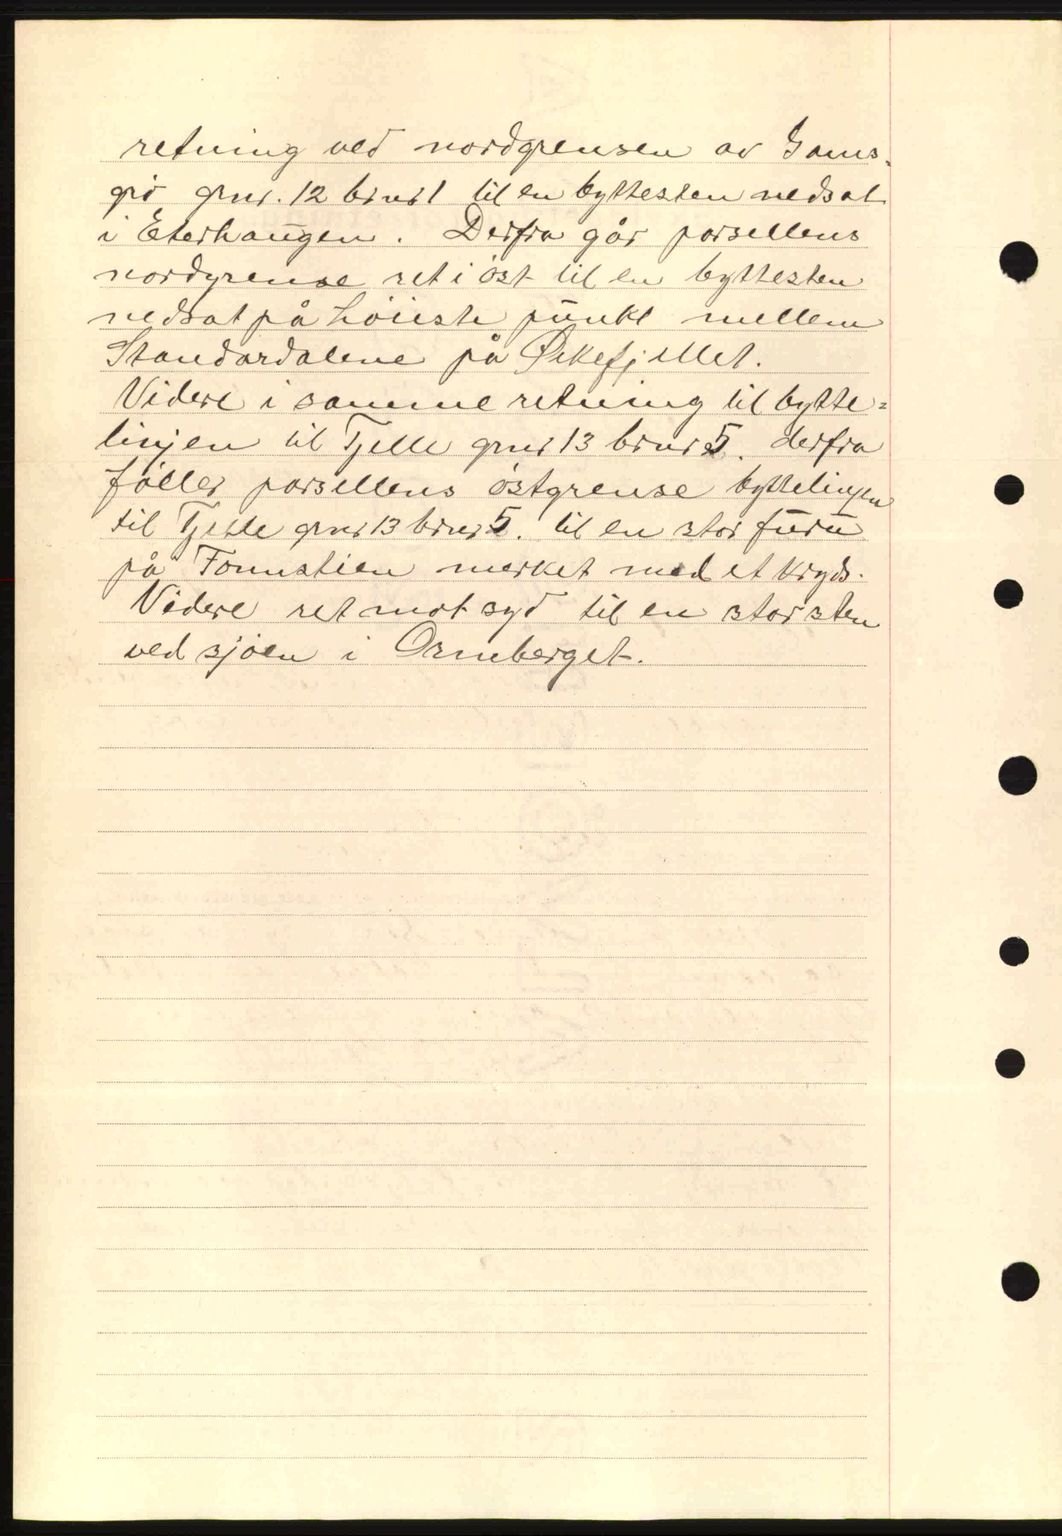 retning ved nordgrensen av Gams-
grö grnr. 12 brnr 1 til en byttesten nedsat
i Eterhaugen. Derfra går parsellens
nordgrense ret i öst til en byttesten
nedsat på höieste punkt mellem
Standardalene på Økefjellet.
Videre i samme retning til bytte=
linjen til Tjelle grnr 13 brnr 5. derfra
föller parsellens östgrense byttelinjen
til Tjelle grnr 13 brnr 5. til en stor furu
på Fonnstien merket med et kryds.
Videre ret mot syd til en stor sten
ved sjöen i Ornberget.